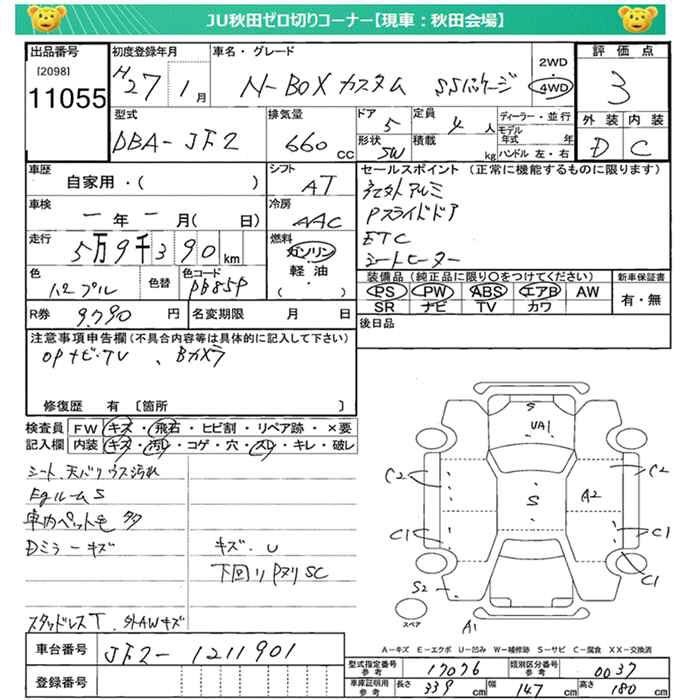 JU秋田ゼロ切りコーナー【現車：秋田会場】
出品番号
[2098]
11055
初度登録年月
H27 1月
車名・グレード
N-BOXカスタム SSパッケージ
2WD
4WD
評価点
3
型式
DBA-JF2
排気量
660 CC
ドア
5
形状
SW
定員
4 人
積載
kg
ディーラー・並行
モデル年式 年
ハンドル 左・右
外装
D
内装
C
車歴
自家用・( )
シフト
AT
車検
一年一月( 日)
冷房
AAC
走行
5万9千390km
燃料
ガソリン・軽油・( )
色
パープル
色替
色コード
PB85P
R券
9,790 円
名変期限 月 日
セールスポイント（正常に機能するものに限ります）
社外アルミ
Pスライドドア
ETC
シートヒーター
装備品（純正品に限り○をつけてください）
PS PW ABS エアB AW
SR ナビ TV カワ
新車保証書
有・無
後日品
注意事項申告欄(不具合内容等は具体的に記入して下さい)
OPナビ・TV、Bカメラ
修復歴 有 〔箇所 〕
検査員記入欄
FW キズ・飛石・ヒビ割・リペア跡・×要
内装 キズ・汚れ・コゲ・穴・スレ・キレ・破レ
シート、天バリウス汚れ
EgルームS
車内ペット毛多
Dミラーキズ
キズ・U
下回りPヌリSC
スタッドレスT、外AWキズ
S
UA1
C2
C2
S
A2
C1
C1
S2
C1
A1
スペア
A-キズ E-エクボ U-凹み W-補修跡 S-サビ C-腐食 XX-交換済
車台番号
JF2-1211901
登録番号
型式指定番号
参考
17076
類別区分番号
参考
0037
車庫証明用
参考
長さ 339 cm
幅 147 cm
高さ 180 cm